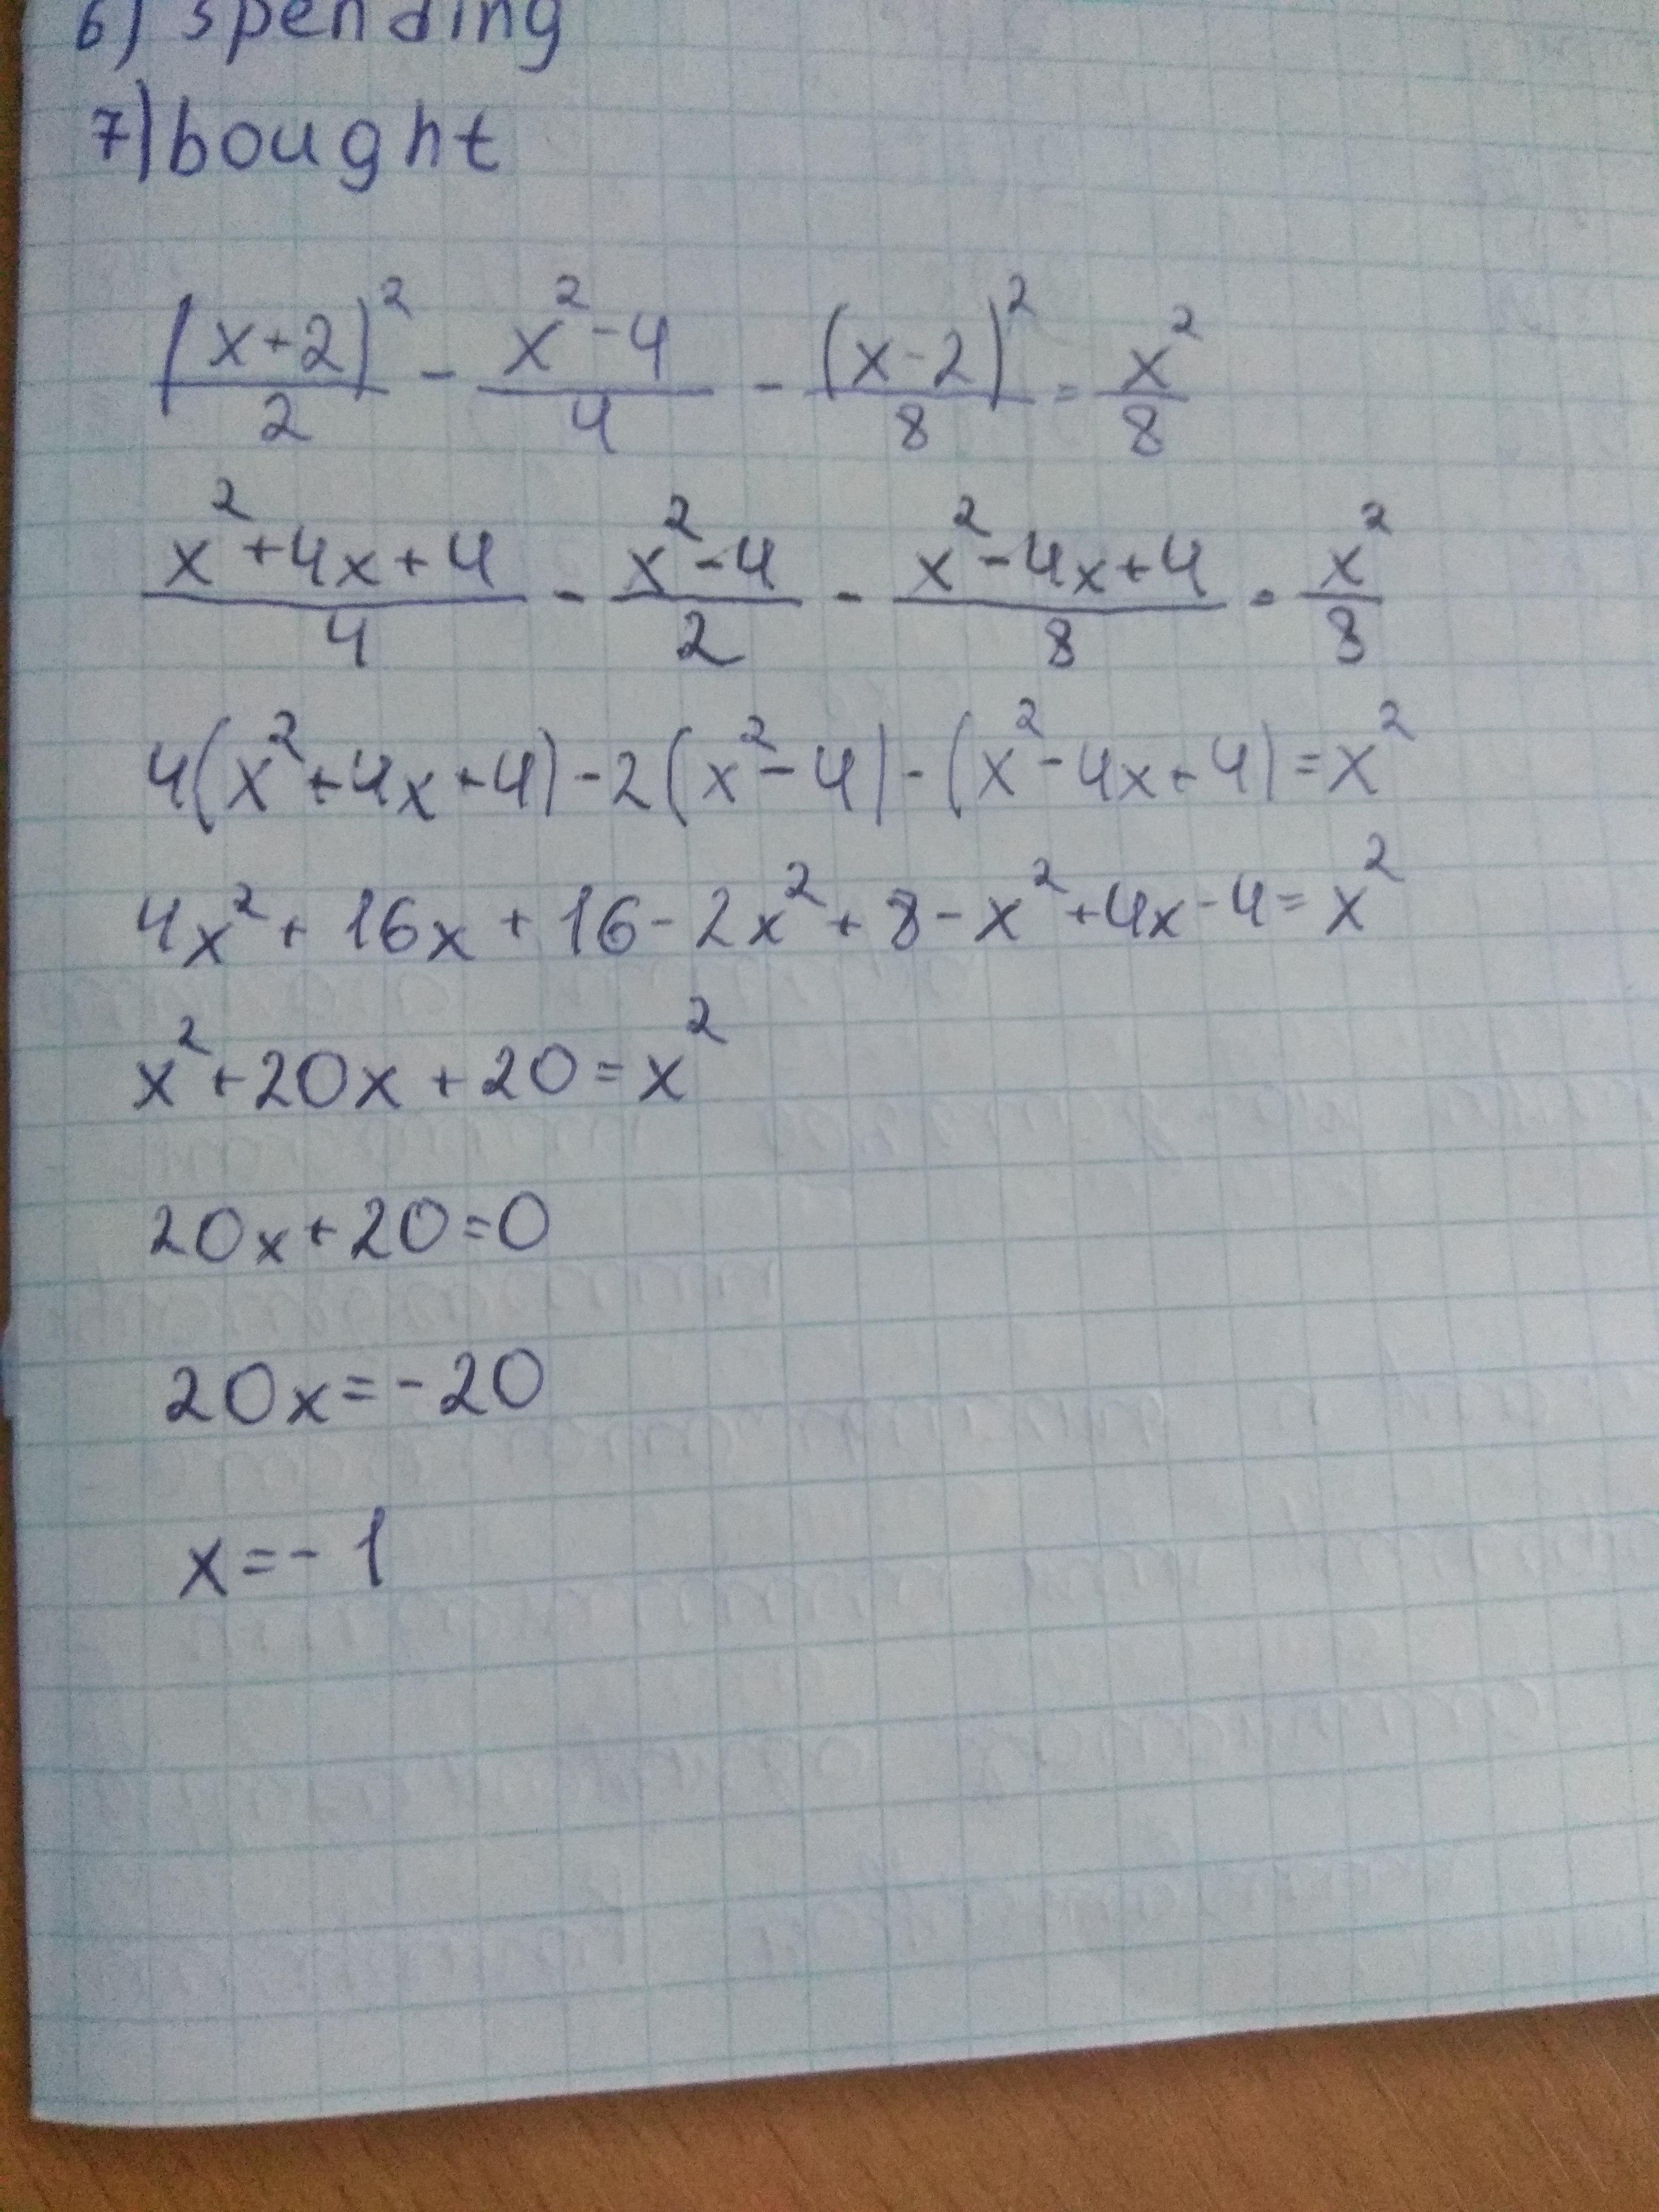 6) spending
7) bought
(x+2)²/2 - x²-4/4 - (x-2)²/8 = x²/8
x²+4x+4/4 - x²-4/2 - x²-4x+4/8 = x²/8
4(x²+4x+4)-2(x²-4)-(x²-4x+4)=x²
4x²+16x+16-2x²+8-x²+4x-4=x²
x²+20x+20=x²
20x+20=0
20x=-20
x=-1